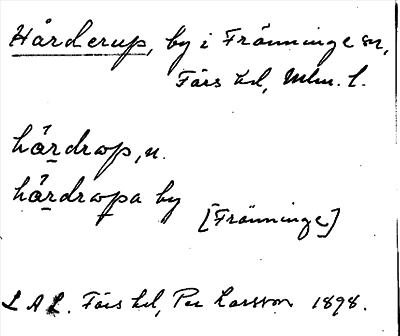 Hårderup, by i Fränninge sn,
Färs hd, Mlm. l.
hårdrop, n.
hårdropa by
[Fränninge]
LAL. Färs hd, Per Larsson 1898.